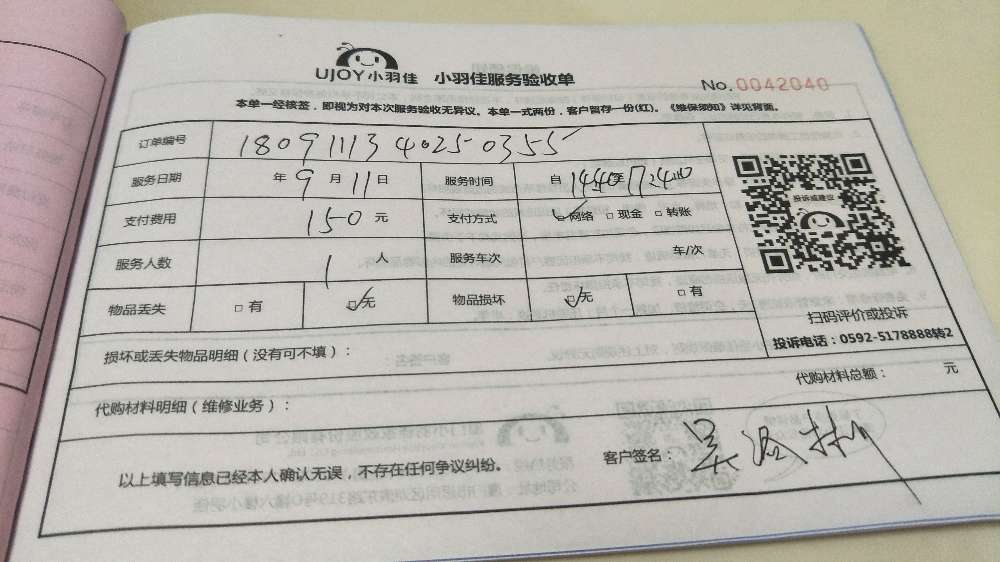 UJOY小羽佳 小羽佳服务验收单
No. 0042040
本单一经核签，即视为对本次服务验收无异议。本单一式两份，客户暂存一份(红)。《维保须知》详见背面。
订单编号 1809111340250355
服务日期 年 9 月 11 日 服务时间 自 14:40 至 17:40
支付费用 150 元 支付方式 ☑网络 □现金 □转账
服务人数 1 人 服务车次 车/次
物品丢失 □有 ☑无 物品损坏 ☑无 □有
投诉或建议
扫码评价或投诉
投诉电话：0592-5178888转2
损坏或丢失物品明细（没有可不填）：
代购材料明细（维修业务）： 代购材料总额： 元
以上填写信息已经本人确认无误，不存在任何争议纠纷。 客户签名：